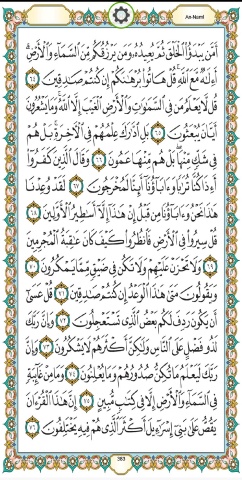 An-Naml
أَمَّن يَبْدَؤُا۟ ٱلْخَلْقَ ثُمَّ يُعِيدُهُۥ وَمَن يَرْزُقُكُم مِّنَ ٱلسَّمَآءِ وَٱلْأَرْضِ
أَءِلَـٰهٌ مَّعَ ٱللَّهِ قُلْ هَاتُوا۟ بُرْهَـٰنَكُمْ إِن كُنتُمْ صَـٰدِقِينَ ٦٤
قُل لَّا يَعْلَمُ مَن فِى ٱلسَّمَـٰوَٰتِ وَٱلْأَرْضِ ٱلْغَيْبَ إِلَّا ٱللَّهُ وَمَا يَشْعُرُونَ
أَيَّانَ يُبْعَثُونَ ٦٥ بَلِ ٱدَّٰرَكَ عِلْمُهُمْ فِى ٱلْـَٔاخِرَةِ بَلْ هُمْ
فِى شَكٍّ مِّنْهَا بَلْ هُم مِّنْهَا عَمُونَ ٦٦ وَقَالَ ٱلَّذِينَ كَفَرُوٓا۟
أَءِذَا كُنَّا تُرَٰبًا وَءَابَآؤُنَآ أَئِنَّا لَمُخْرَجُونَ ٦٧ لَقَدْ وُعِدْنَا
هَـٰذَا نَحْنُ وَءَابَآؤُنَا مِن قَبْلُ إِنْ هَـٰذَآ إِلَّآ أَسَـٰطِيرُ ٱلْأَوَّلِينَ ٦٨
قُلْ سِيرُوا۟ فِى ٱلْأَرْضِ فَٱنظُرُوا۟ كَيْفَ كَانَ عَـٰقِبَةُ ٱلْمُجْرِمِينَ
٦٩ وَلَا تَحْزَنْ عَلَيْهِمْ وَلَا تَكُن فِى ضَيْقٍ مِّمَّا يَمْكُرُونَ ٧٠
وَيَقُولُونَ مَتَىٰ هَـٰذَا ٱلْوَعْدُ إِن كُنتُمْ صَـٰدِقِينَ ٧١ قُلْ عَسَىٰٓ
أَن يَكُونَ رَدِفَ لَكُم بَعْضُ ٱلَّذِى تَسْتَعْجِلُونَ ٧٢ وَإِنَّ رَبَّكَ
لَذُو فَضْلٍ عَلَى ٱلنَّاسِ وَلَـٰكِنَّ أَكْثَرَهُمْ لَا يَشْكُرُونَ ٧٣ وَإِنَّ
رَبَّكَ لَيَعْلَمُ مَا تُكِنُّ صُدُورُهُمْ وَمَا يُعْلِنُونَ ٧٤ وَمَا مِنْ غَآئِبَةٍ
فِى ٱلسَّمَآءِ وَٱلْأَرْضِ إِلَّا فِى كِتَـٰبٍ مُّبِينٍ ٧٥ إِنَّ هَـٰذَا ٱلْقُرْءَانَ
يَقُصُّ عَلَىٰ بَنِىٓ إِسْرَٰٓءِيلَ أَكْثَرَ ٱلَّذِى هُمْ فِيهِ يَخْتَلِفُونَ ٧٦
383